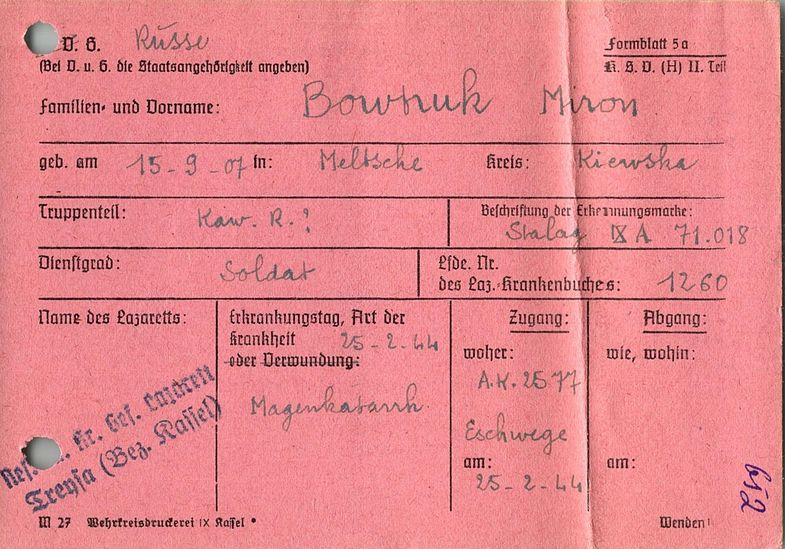 D. G. Russe
Formblatt 5a
(Bei D. u. G. die Staatsangehörigkeit angeben)
K. S. D. (H) II. Teil
Familien- und Vorname: Bownuk Miron
geb. am 15-9-07 in: Meltsche Kreis: Kiewska
Truppenteil: Kaw. R.?
Beschriftung der Erkennungsmarke:
Stalag IX A 71.018
Dienstgrad: Soldat
Lfde. Nr.
des Laz.-Krankenbuches: 1260
Name des Lazaretts:
Res. Kr. Gef. Lazarett
Treysa (Bez. Kassel)
Erkrankungstag, Art der
Krankheit 25-2-44
oder Verwundung:
Magenkatarrh
Zugang:
woher:
A.K. 2577
Eschwege
am:
25-2-44
Abgang:
wie, wohin:
am:
652
M 27 Wehrkreisdruckerei IX Kassel
Wenden!